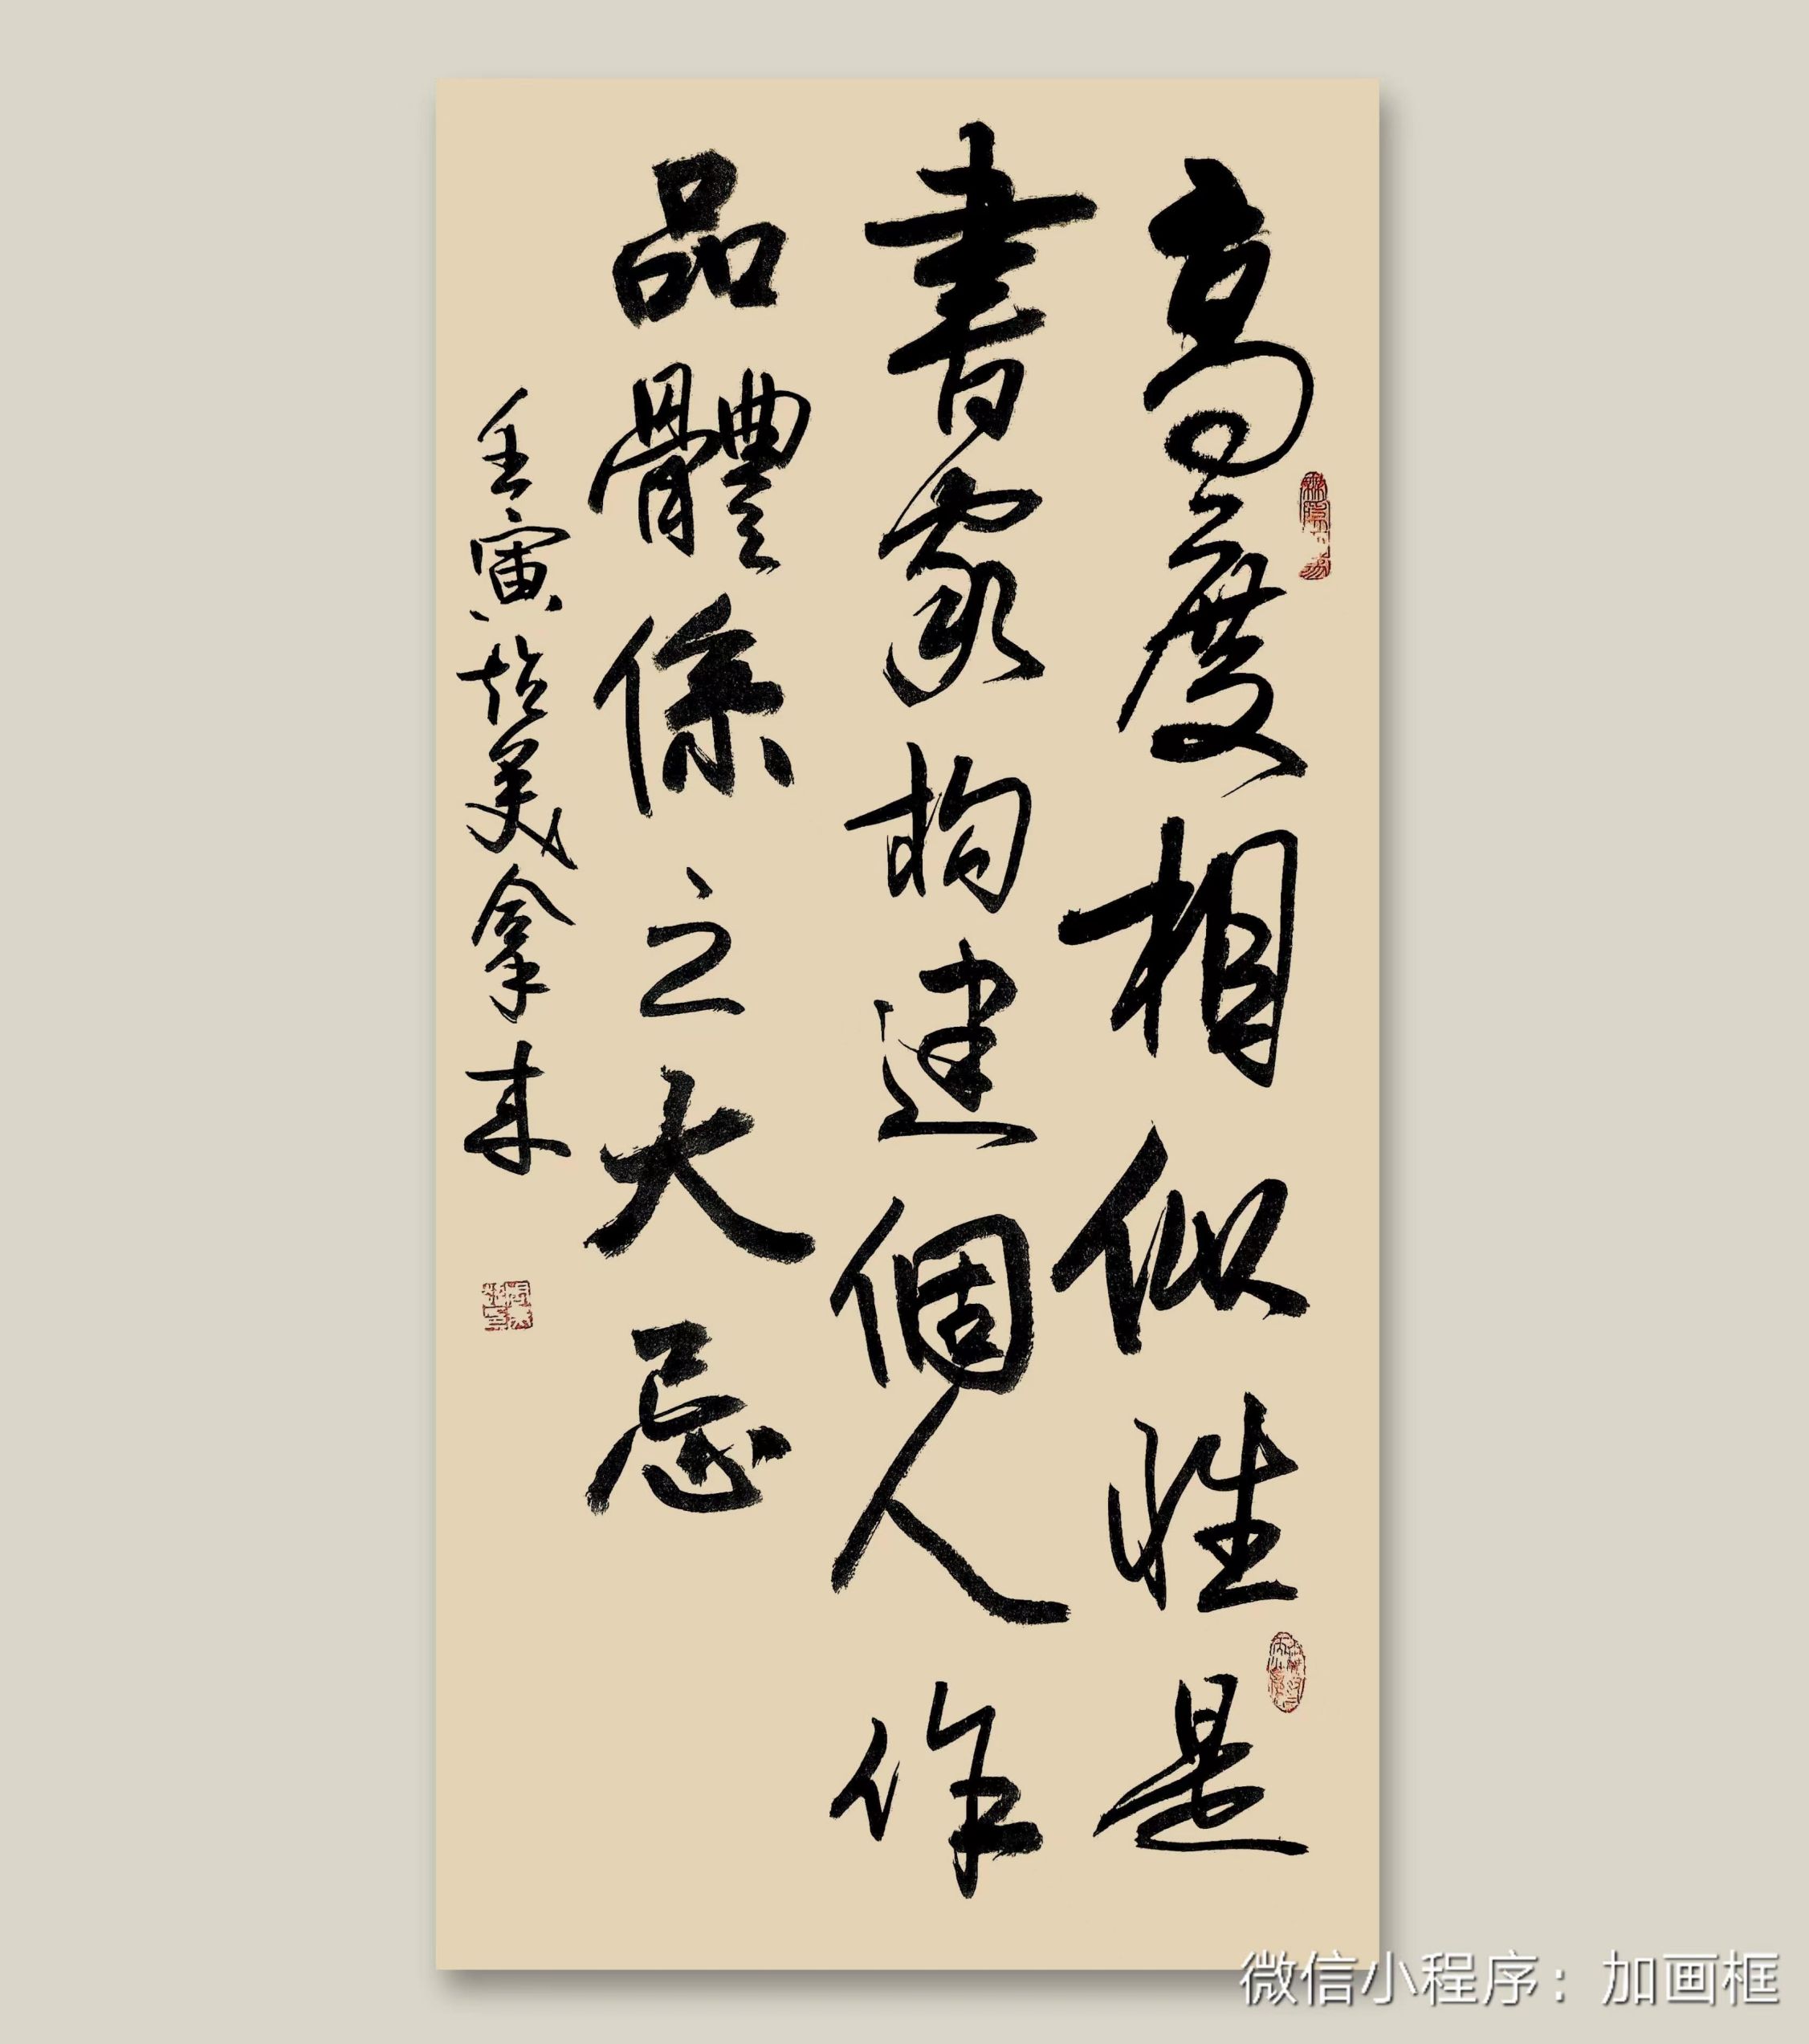 高度相似性是
書家构建個人作
品體係之大忌
壬寅 美拿来
微信小程序：加画框